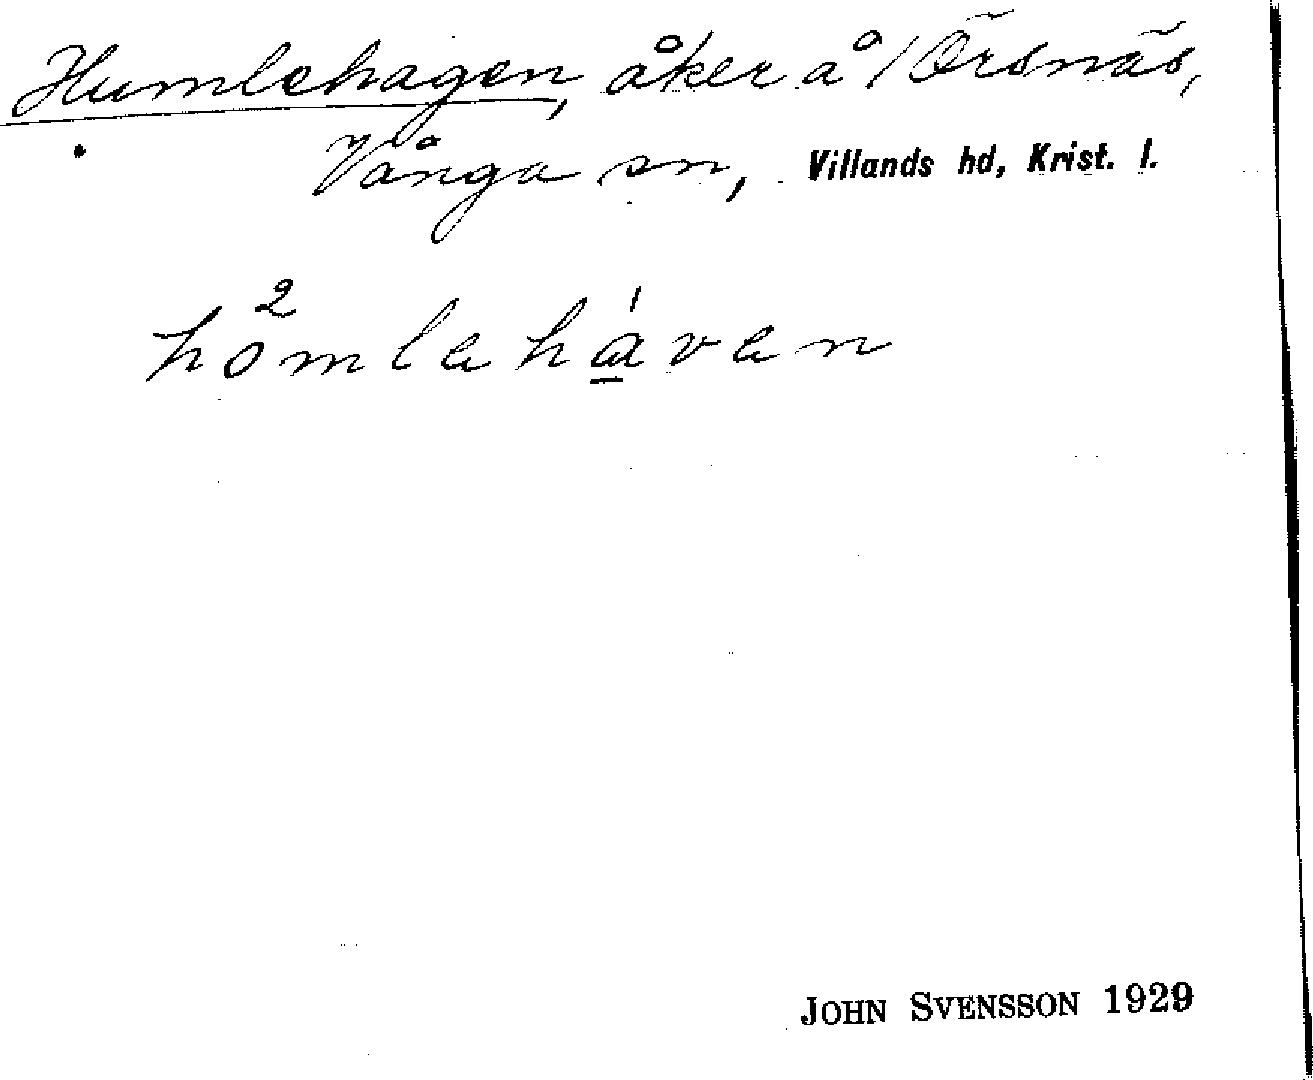 Humlehagen, åker å /Örsnäs,
Vånga sn, Villands hd, Krist. l.
ho²mlaha̲ˈvan
JOHN SVENSSON 1929